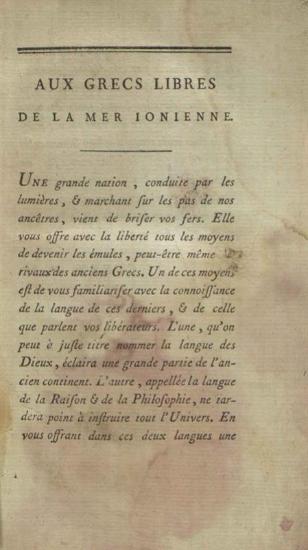 AUX GRECS LIBRES
DE LA MER IONIENNE.
UNE grande nation, conduite par les
lumières, & marchant ſur les pas de nos
ancêtres, vient de briſer vos fers. Elle
vous offre avec la liberté tous les moyens
de devenir les émules, peut-être même
rivaux des anciens Grecs. Un de ces moyens
eſt de vous familiariſer avec la connoiſſance
de la langue de ces derniers, & de celle
que parlent vos libérateurs. L'une, qu'on
peut à juſte titre nommer la langue des
Dieux, éclaira une grande partie de l'an-
cien continent. L'autre, appellée la langue
de la Raiſon & de la Philoſophie, ne tar-
dera point à inſtruire tout l'Univers. En
vous offrant dans ces deux langues une